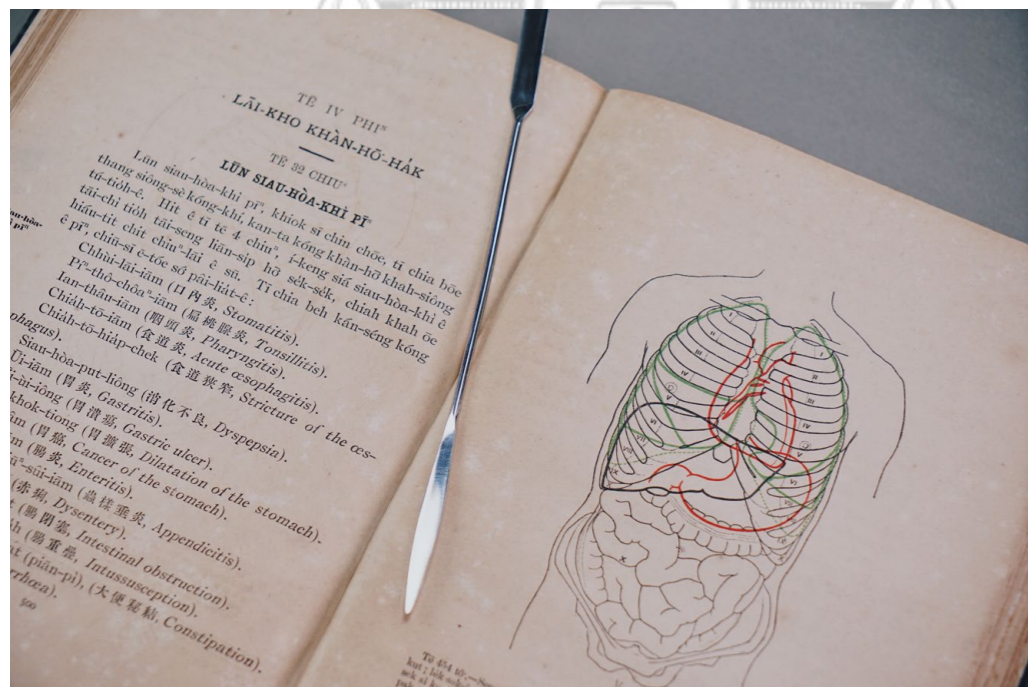 TĒ IV PHIⁿ
LĀI-KHO KHÀN-HŌ͘-HÁK
TĒ 32 CHIUⁿ
LŪN SIAU-HÒA-KHÌ PĪⁿ
Lūn siau-hòa-khì pīⁿ, khiok sī chin chōe, tī chia bōe
thang siông-sè kóng-khí, kan-ta kóng khàn-hō͘ khah-siông
tú-tio̍h-ê. Hit ê tī tē 4 chiuⁿ, í-keng siá siau-hòa-khì ê
tāi-chì tio̍h tāi-seng liān-si̍p hō͘ se̍k-sek, chiah khah ōe
hiáu-tit chit chiuⁿ-lāi ê sū. Tī chia beh kán-séng kóng
ê pīⁿ, chiū-sī ē-tóe só͘ pâi-lia̍t-ê:
Chhùi-lāi-iām (口內炎, Stomatitis).
Píⁿ-thô-chôaⁿ-iām (扁桃腺炎, Tonsillitis).
Ian-thâu-iām (咽頭炎, Pharyngitis).
Chia̍h-tō-iām (食道炎, Acute œsophagitis).
Chia̍h-tō-hia̍p-chek (食道狹窄, Stricture of the œs-
phagus).
Siau-hòa-put-liông (消化不良, Dyspepsia).
Ūi-iām (胃炎, Gastritis).
(胃潰瘍, Gastric ulcer).
khok-tiong (胃擴張, Dilatation of the stomach).
(胃癌, Cancer of the stomach).
(腸炎, Enteritis).
sûi-iām (蟲樣垂炎, Appendicitis).
(赤痢, Dysentery).
(腸閉塞, Intestinal obstruction).
(腸重疊, Intussusception).
(piān-pì), (大便秘結, Constipation).
500
Tē 454 tô͘.